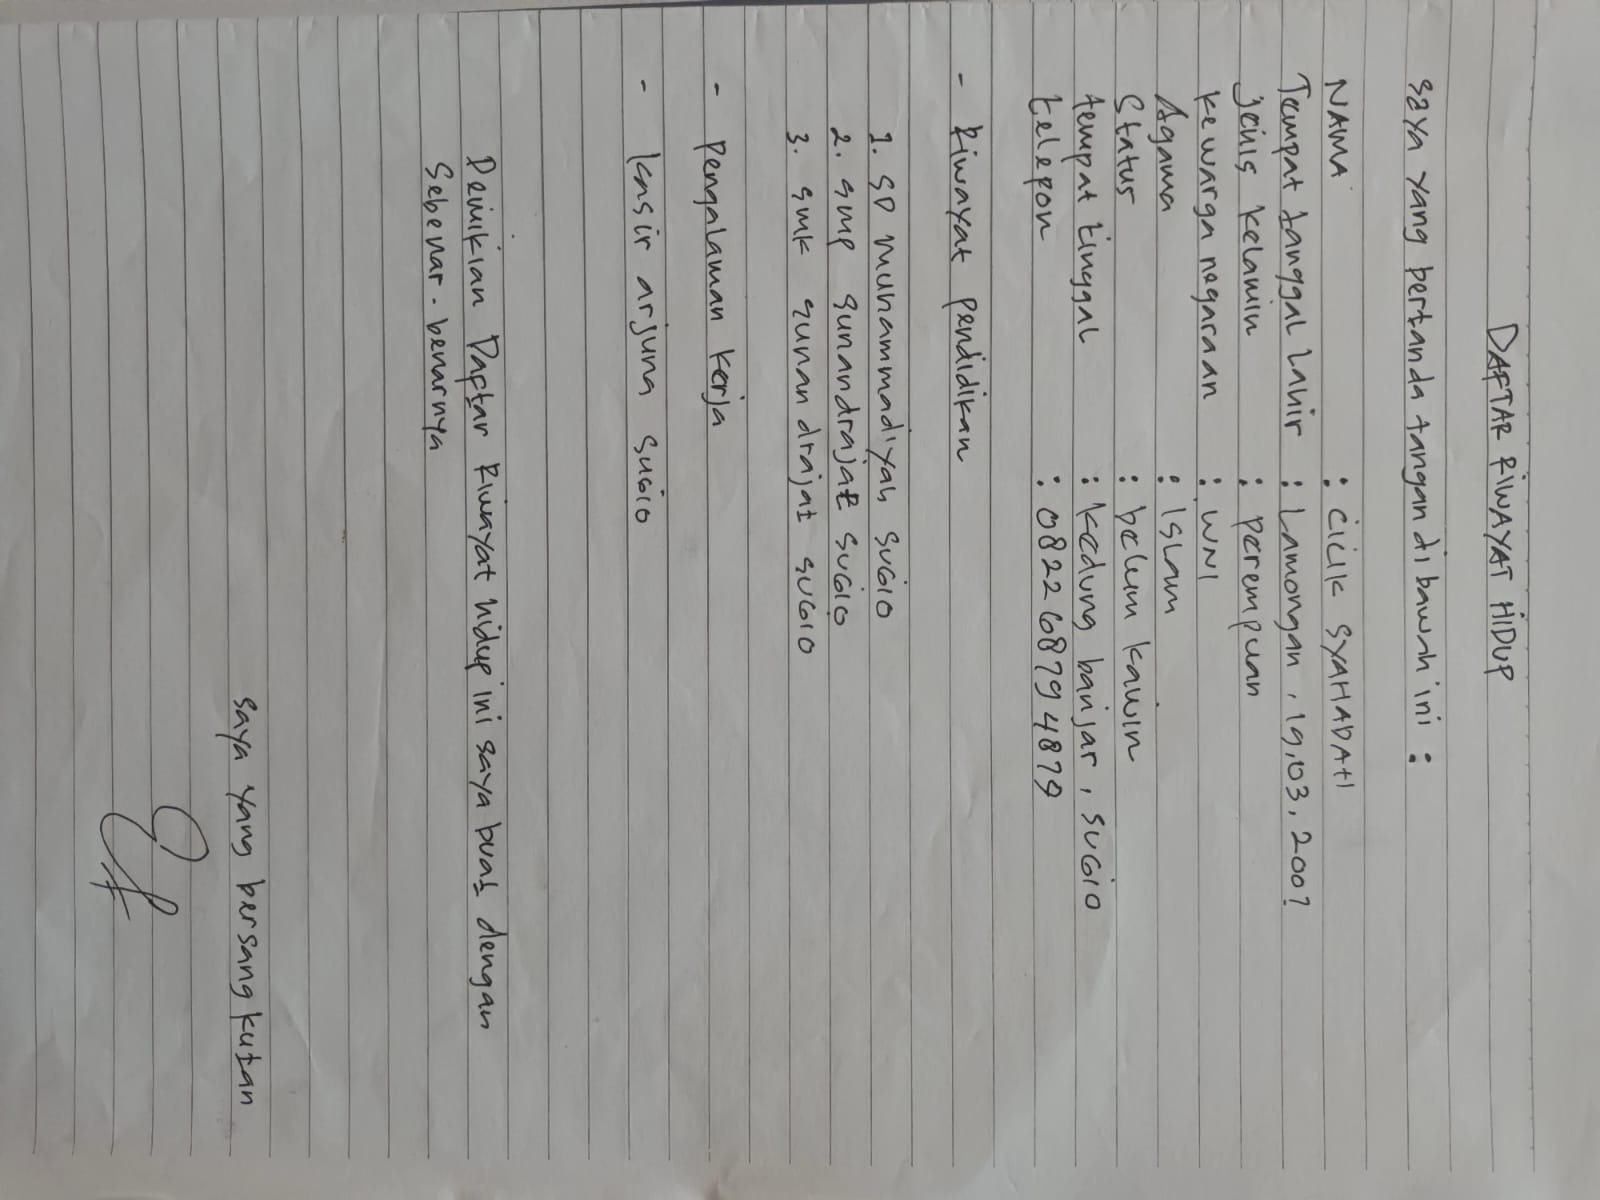 DAFTAR RIWAYAT HIDUP
saya yang bertanda tangan di bawah ini :
NAMA : CICIK SYAHADATI
Tempat tanggal Lahir : Lamongan, 19,03, 2007
jenis kelamin : perempuan
kewarga negaraan : WNI
Agama : Islam
Status : belum kawin
tempat tinggal : kedung banjar, SUGIO
telepon : 082268794879
- Riwayat pendidikan
1. SD muhammadiyah SUGIO
2. SMP sunandrajat SUGIO
3. SMK sunan drajat SUGIO
- pengalaman kerja
- kasir arjuna SUGIO
Demikian Daftar Riwayat hidup ini saya buat dengan
Sebenar-benarnya
saya yang bersangkutan